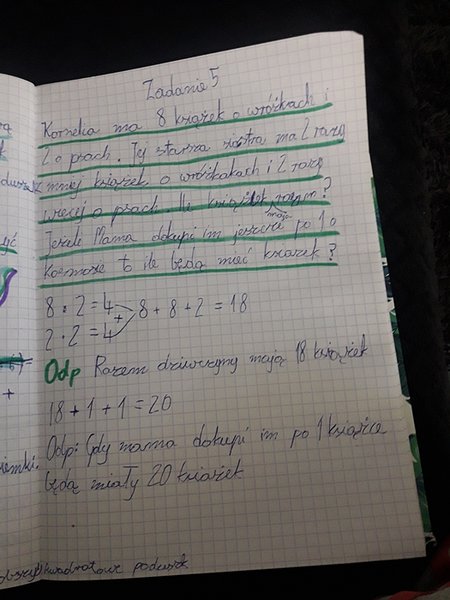 Zadanie 5
Kornelia ma 8 książek o wróżkach i
2 o psach. Jej starsza siostra ma 2 razy
mniej książek o wróżkakach i 2 razy
więcej o psach. Ile książek mają razem?
Jeżeli Mama dokupi im jeszcze po 1 o
kosmosie to ile będą mieć książek?
8 : 2 = 4
+ 8 + 8 + 2 = 18
2 · 2 = 4
Odp Razem dziewczyny mają 18 książek
18 + 1 + 1 = 20
Odp: Gdy mama dokupi im po 1 książce
będą miały 20 książek
kwadratowe poduszk